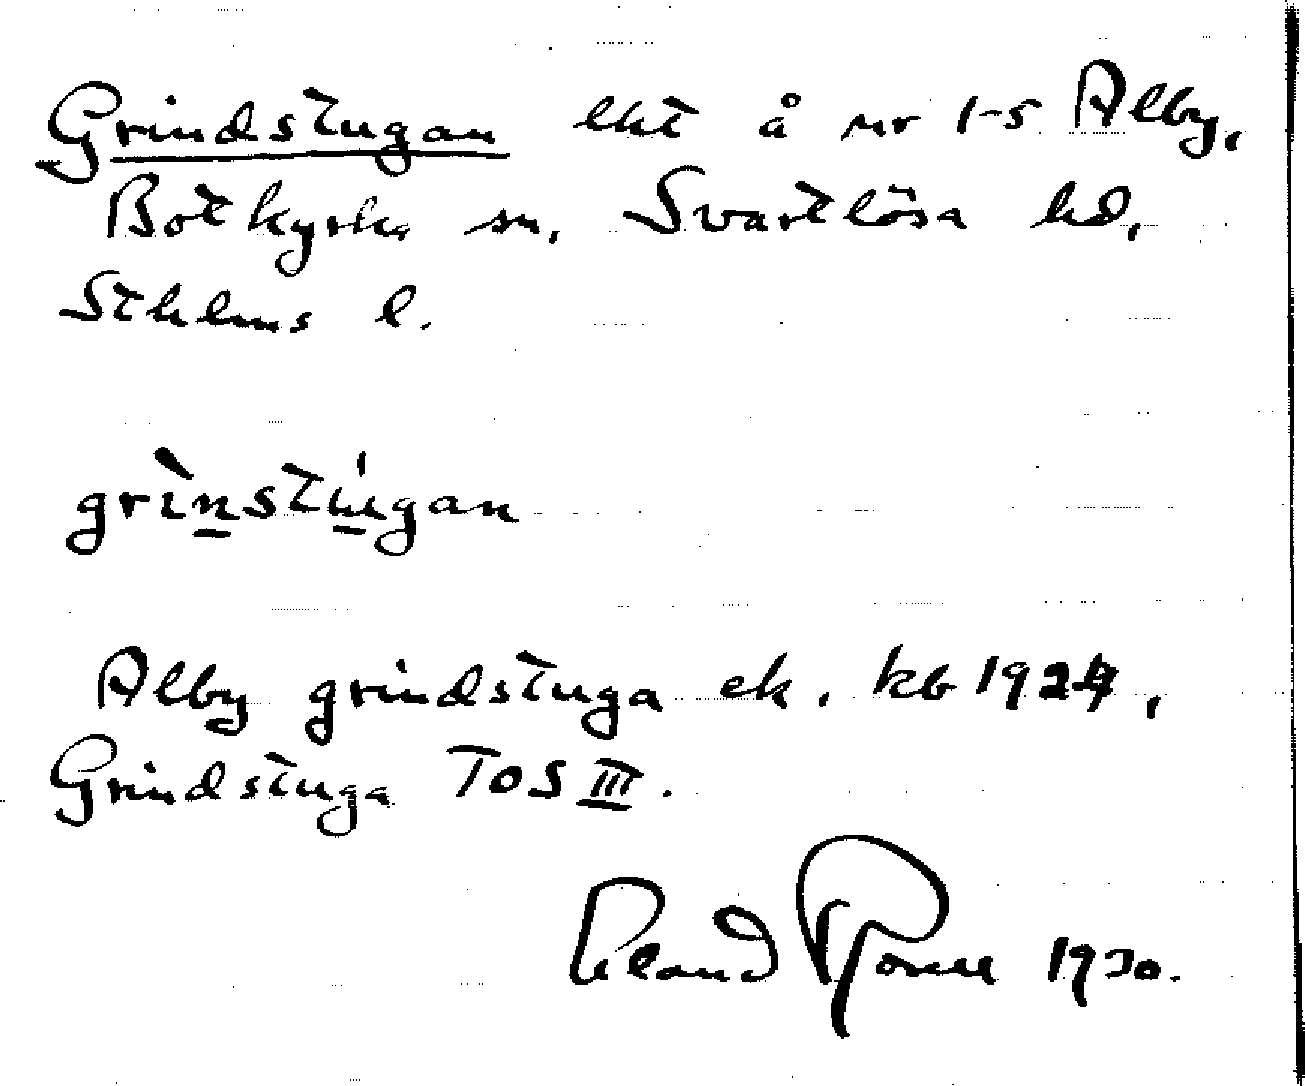 Grindstugan lht å nr 1-5 Alby,
Botkyrka sn, Svartlösa hd,
Sthlms l.
grìnstu̍gan
Alby grindstuga ek. kb 1924,
Grindstuga TOS III.
1930.